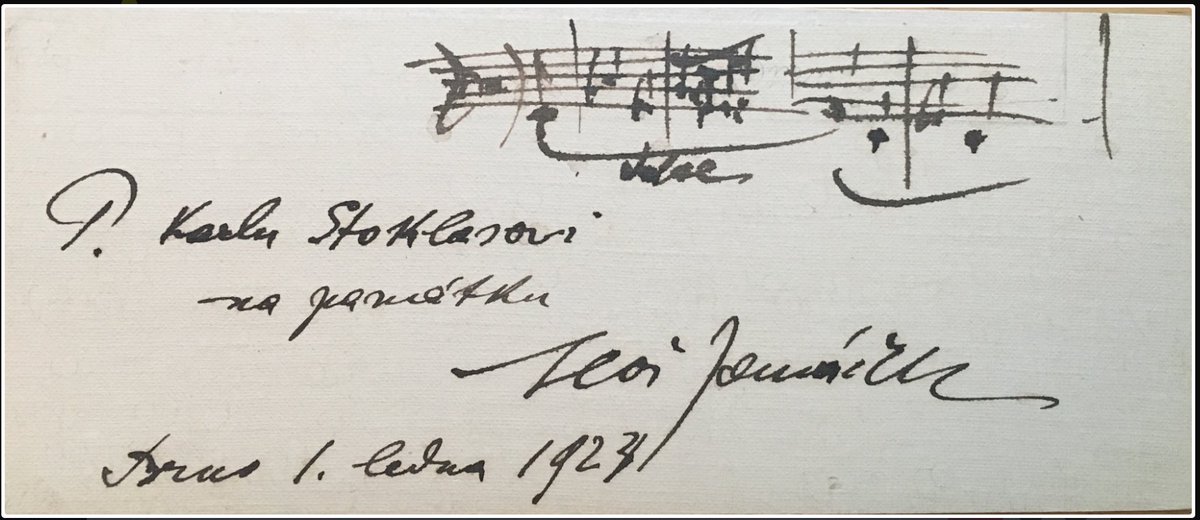 P. Karlu Stoklasovi
na památku
Leoš Janáček
Brno 1. ledna